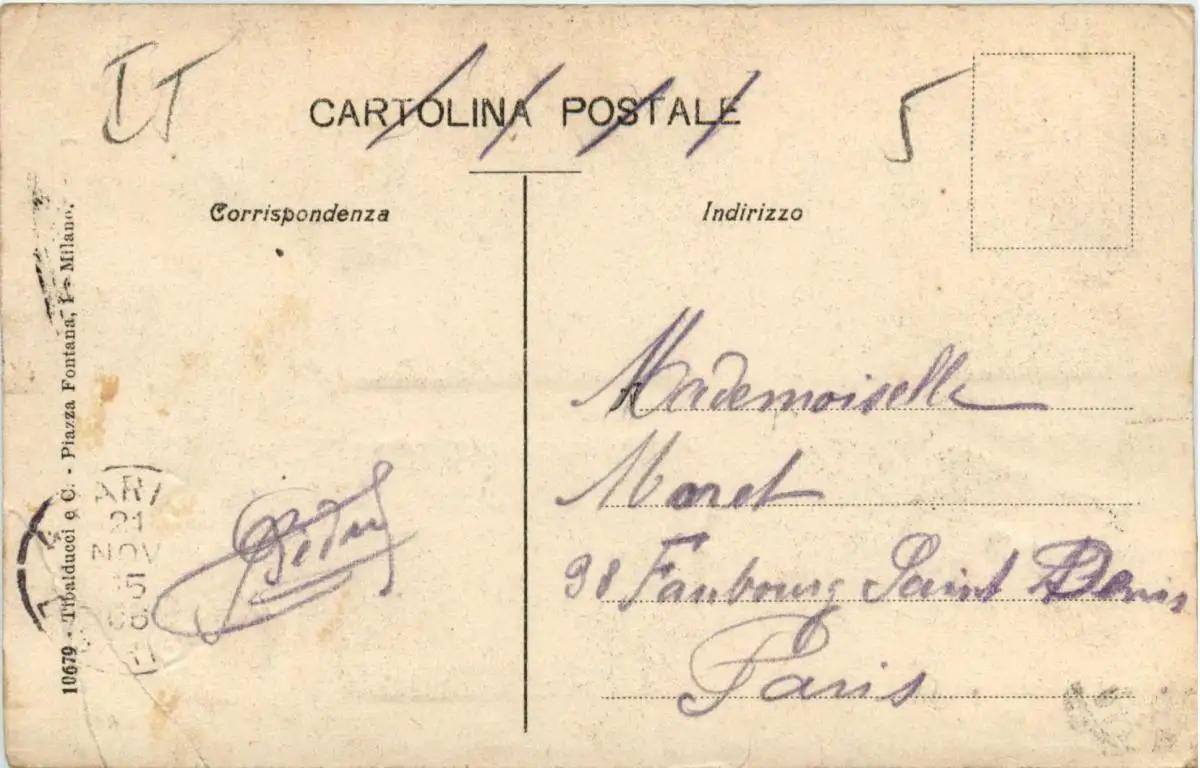 IT
CARTOLINA POSTALE
5
Corrispondenza
Indirizzo
10679 - Tibalducci e C. - Piazza Fontana, 1 - Milano.
Mademoiselle
Moret
98 Faubourg Saint Denis
Paris
21
NOV